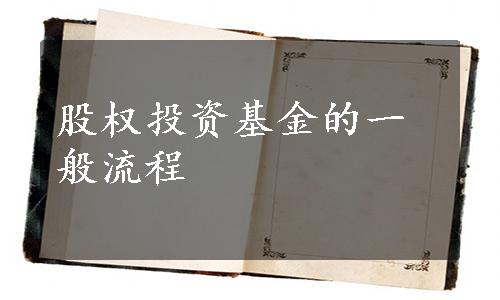 股权投资基金的一
般流程